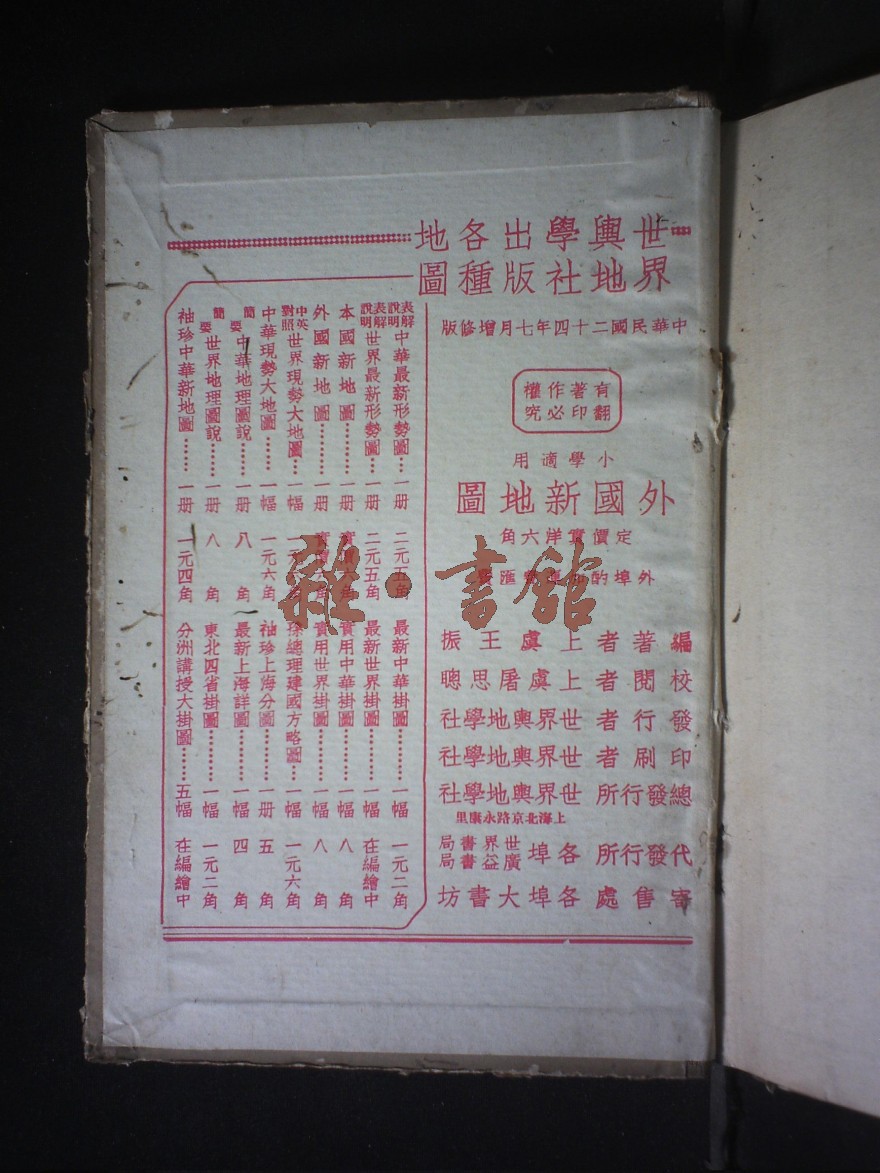 世界輿地學社出版各種地圖
中華民國二十四年七月增修版
有著作權
翻印必究
小學適用
外國新地圖
定價實洋六角
外埠酌加
編著者 上虞王振
校閱者 上虞屠思聰
發行者 世界輿地學社
印刷者 世界輿地學社
總發行所 世界輿地學社
上海北京路永康里
代發行所 各埠 世界書局 廣益書局
寄售處 各埠大書坊
表解說明 中華最新形勢圖……一册 二元五角
表解說明 世界最新形勢圖……一册 二元五角
本國新地圖……一册 實價
外國新地圖……一册 實價六角
中英對照 世界現勢大地圖……一幅
中華現勢大地圖……一幅 一元六角
簡要 中華地理圖說……一册 八角
簡要 世界地理圖說……一册 八角
袖珍中華新地圖……一册 一元四角
最新中華掛圖……一幅 一元二角
最新世界掛圖……一幅 在編繪中
實用中華掛圖……一幅 八角
實用世界掛圖……一幅 八角
孫總理建國方略圖……一幅 一元六角
袖珍上海分圖……一册 五角
最新上海詳圖……一幅 四角
東北四省掛圖……一幅 一元二角
分洲講授大掛圖……五幅 在編繪中
雜·書館